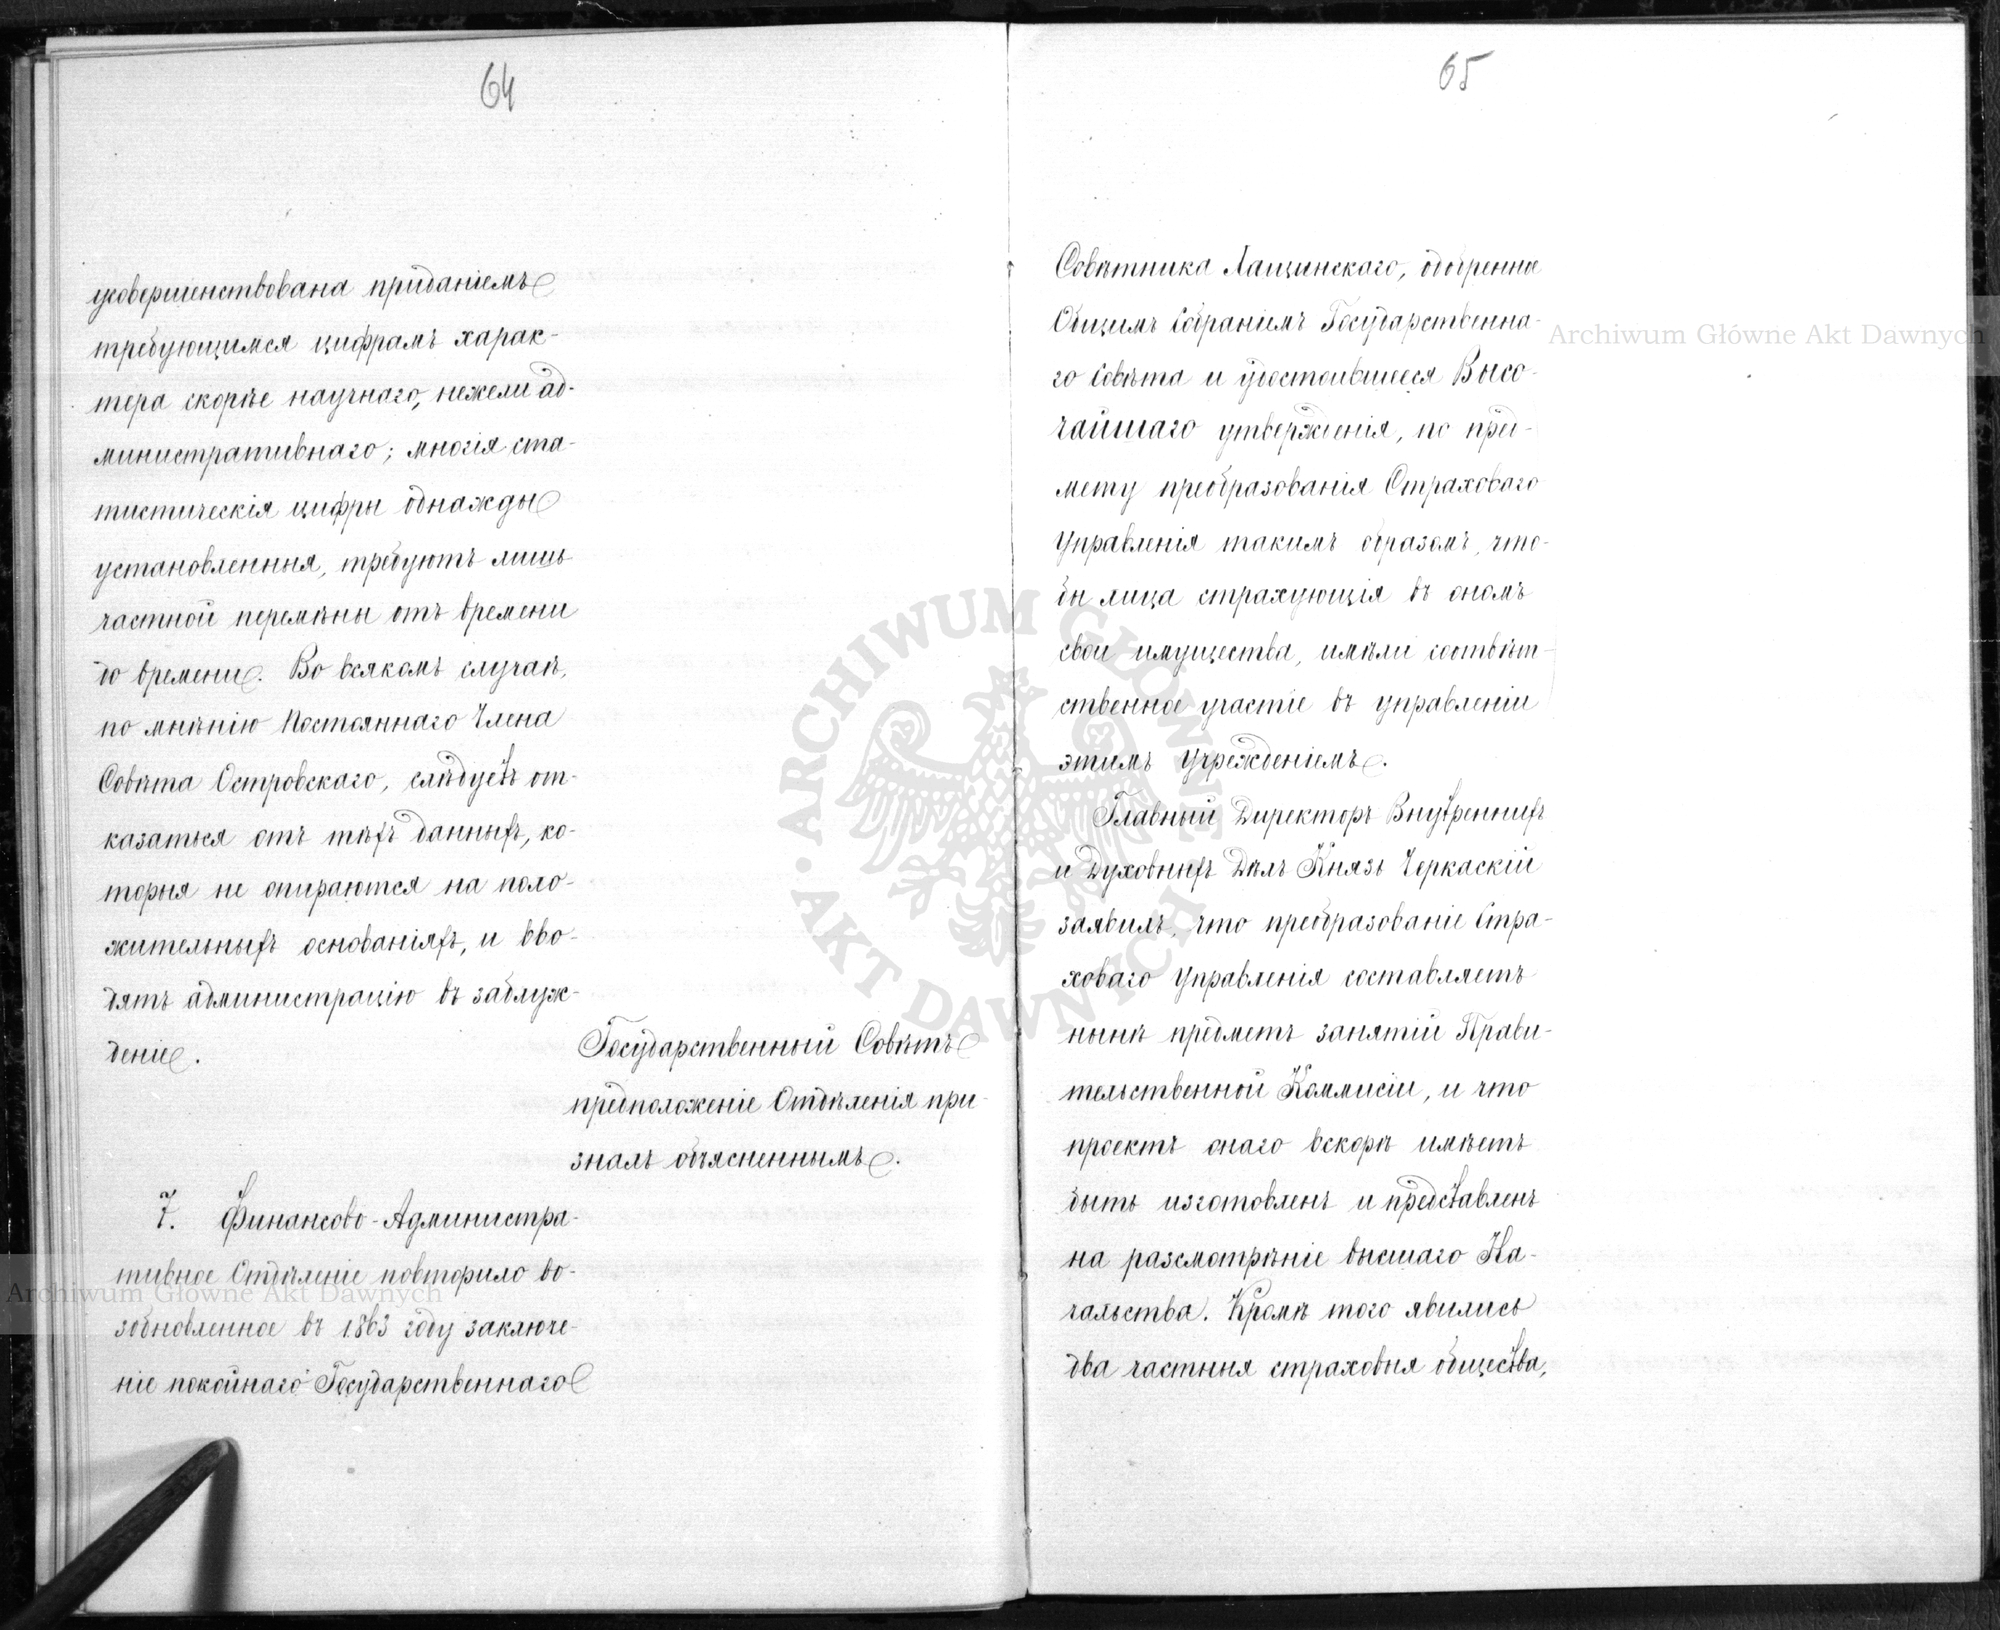 64
усовершенствована приданіемъ
требующимся цифрамъ харак-
тера скорѣе научнаго, нежели ад-
министративнаго; многія ста-
тистическія цифры однажды
установленныя, требуютъ лишь
частной перемѣны отъ времени
до времени. Во всякомъ случаѣ,
по мнѣнію Постояннаго Члена
Совѣта Островскаго, слѣдуетъ от-
казаться отъ тѣхъ данныхъ, ко-
торыя не опираются на поло-
жительныхъ основаніяхъ, и вво-
дятъ администрацію въ заблуж-
деніе.
Государственный Совѣтъ
предположеніе Отдѣленія при-
зналъ объясненнымъ.
7. Финансово-Администра-
тивное Отдѣленіе повторило во-
зобновленное въ 1863 году заключе-
ніе покойнаго Государственнаго
65
Совѣтника Лащинскаго, одобренное
Общимъ Собраніемъ Государственна-
го Совѣта и удостоившееся Высо-
чайшаго утвержденія, по пред-
мету преобразованія Страховаго
Управленія такимъ образомъ, что-
бы лица страхующія въ ономъ
свои имущества, имѣли соотвѣт-
ственное участіе въ управленіи
этимъ Учрежденіемъ.
Главный Директоръ Внутреннихъ
и Духовныхъ Дѣлъ Князь Черкаскій
заявилъ, что преобразованіе Стра-
ховаго Управленія составляетъ
нынѣ предметъ занятій Прави-
тельственной Коммисіи, и что
проектъ онаго вскорѣ имѣетъ
быть изготовленъ и представленъ
на разсмотрѣніе высшаго На-
чальства. Кромѣ того явились
два частныя страховыя общества,
Archiwum Główne Akt Dawnych
Archiwum Główne Akt Dawnych
ARCHIWUM GŁÓWNE
AKT DAWNYCH